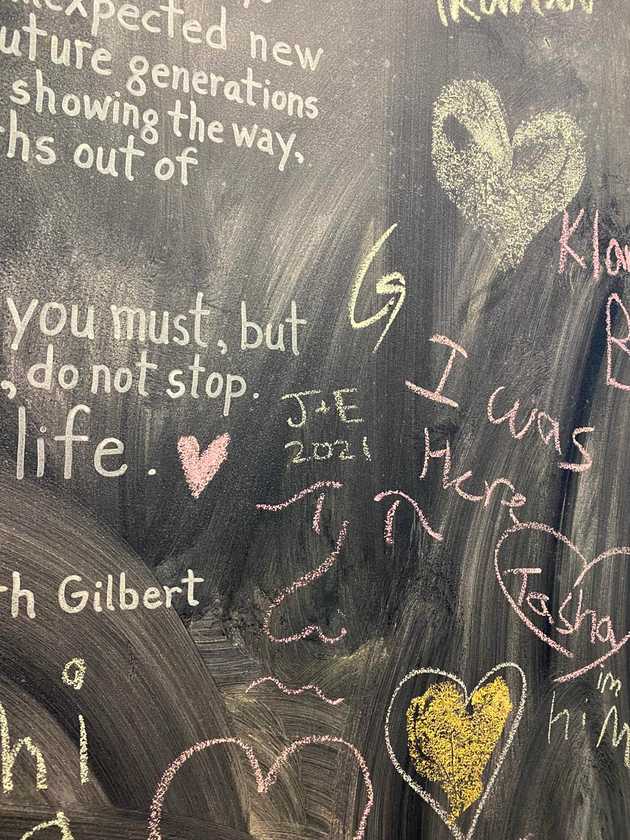 expected new
uture generations
showing the way,
hs out of
you must, but
, do not stop.
life.
h Gilbert
J+E
2021
I was
Here
Tasha
im
hi
hi